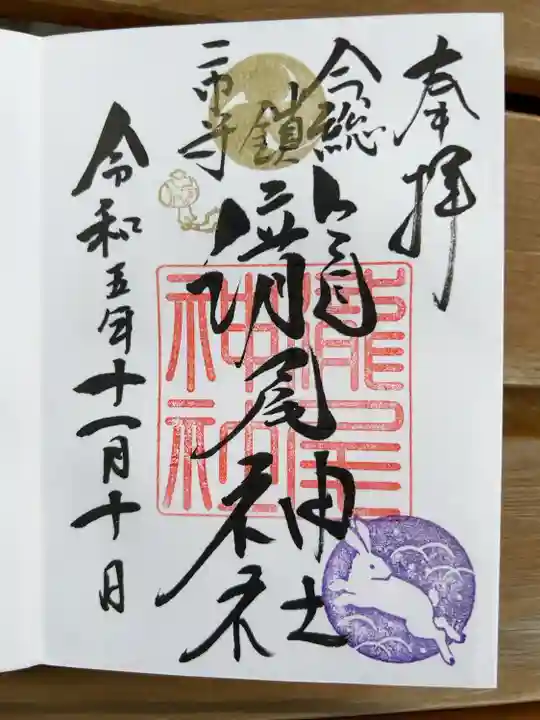 奉拝
今市
総鎮守
瀧尾神社
瀧尾神社
令和五年十一月十日